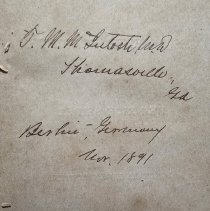 T. M. McIntosh, M.D.
Thomasville,
Ga
Berlin, Germany
Nov. 1891